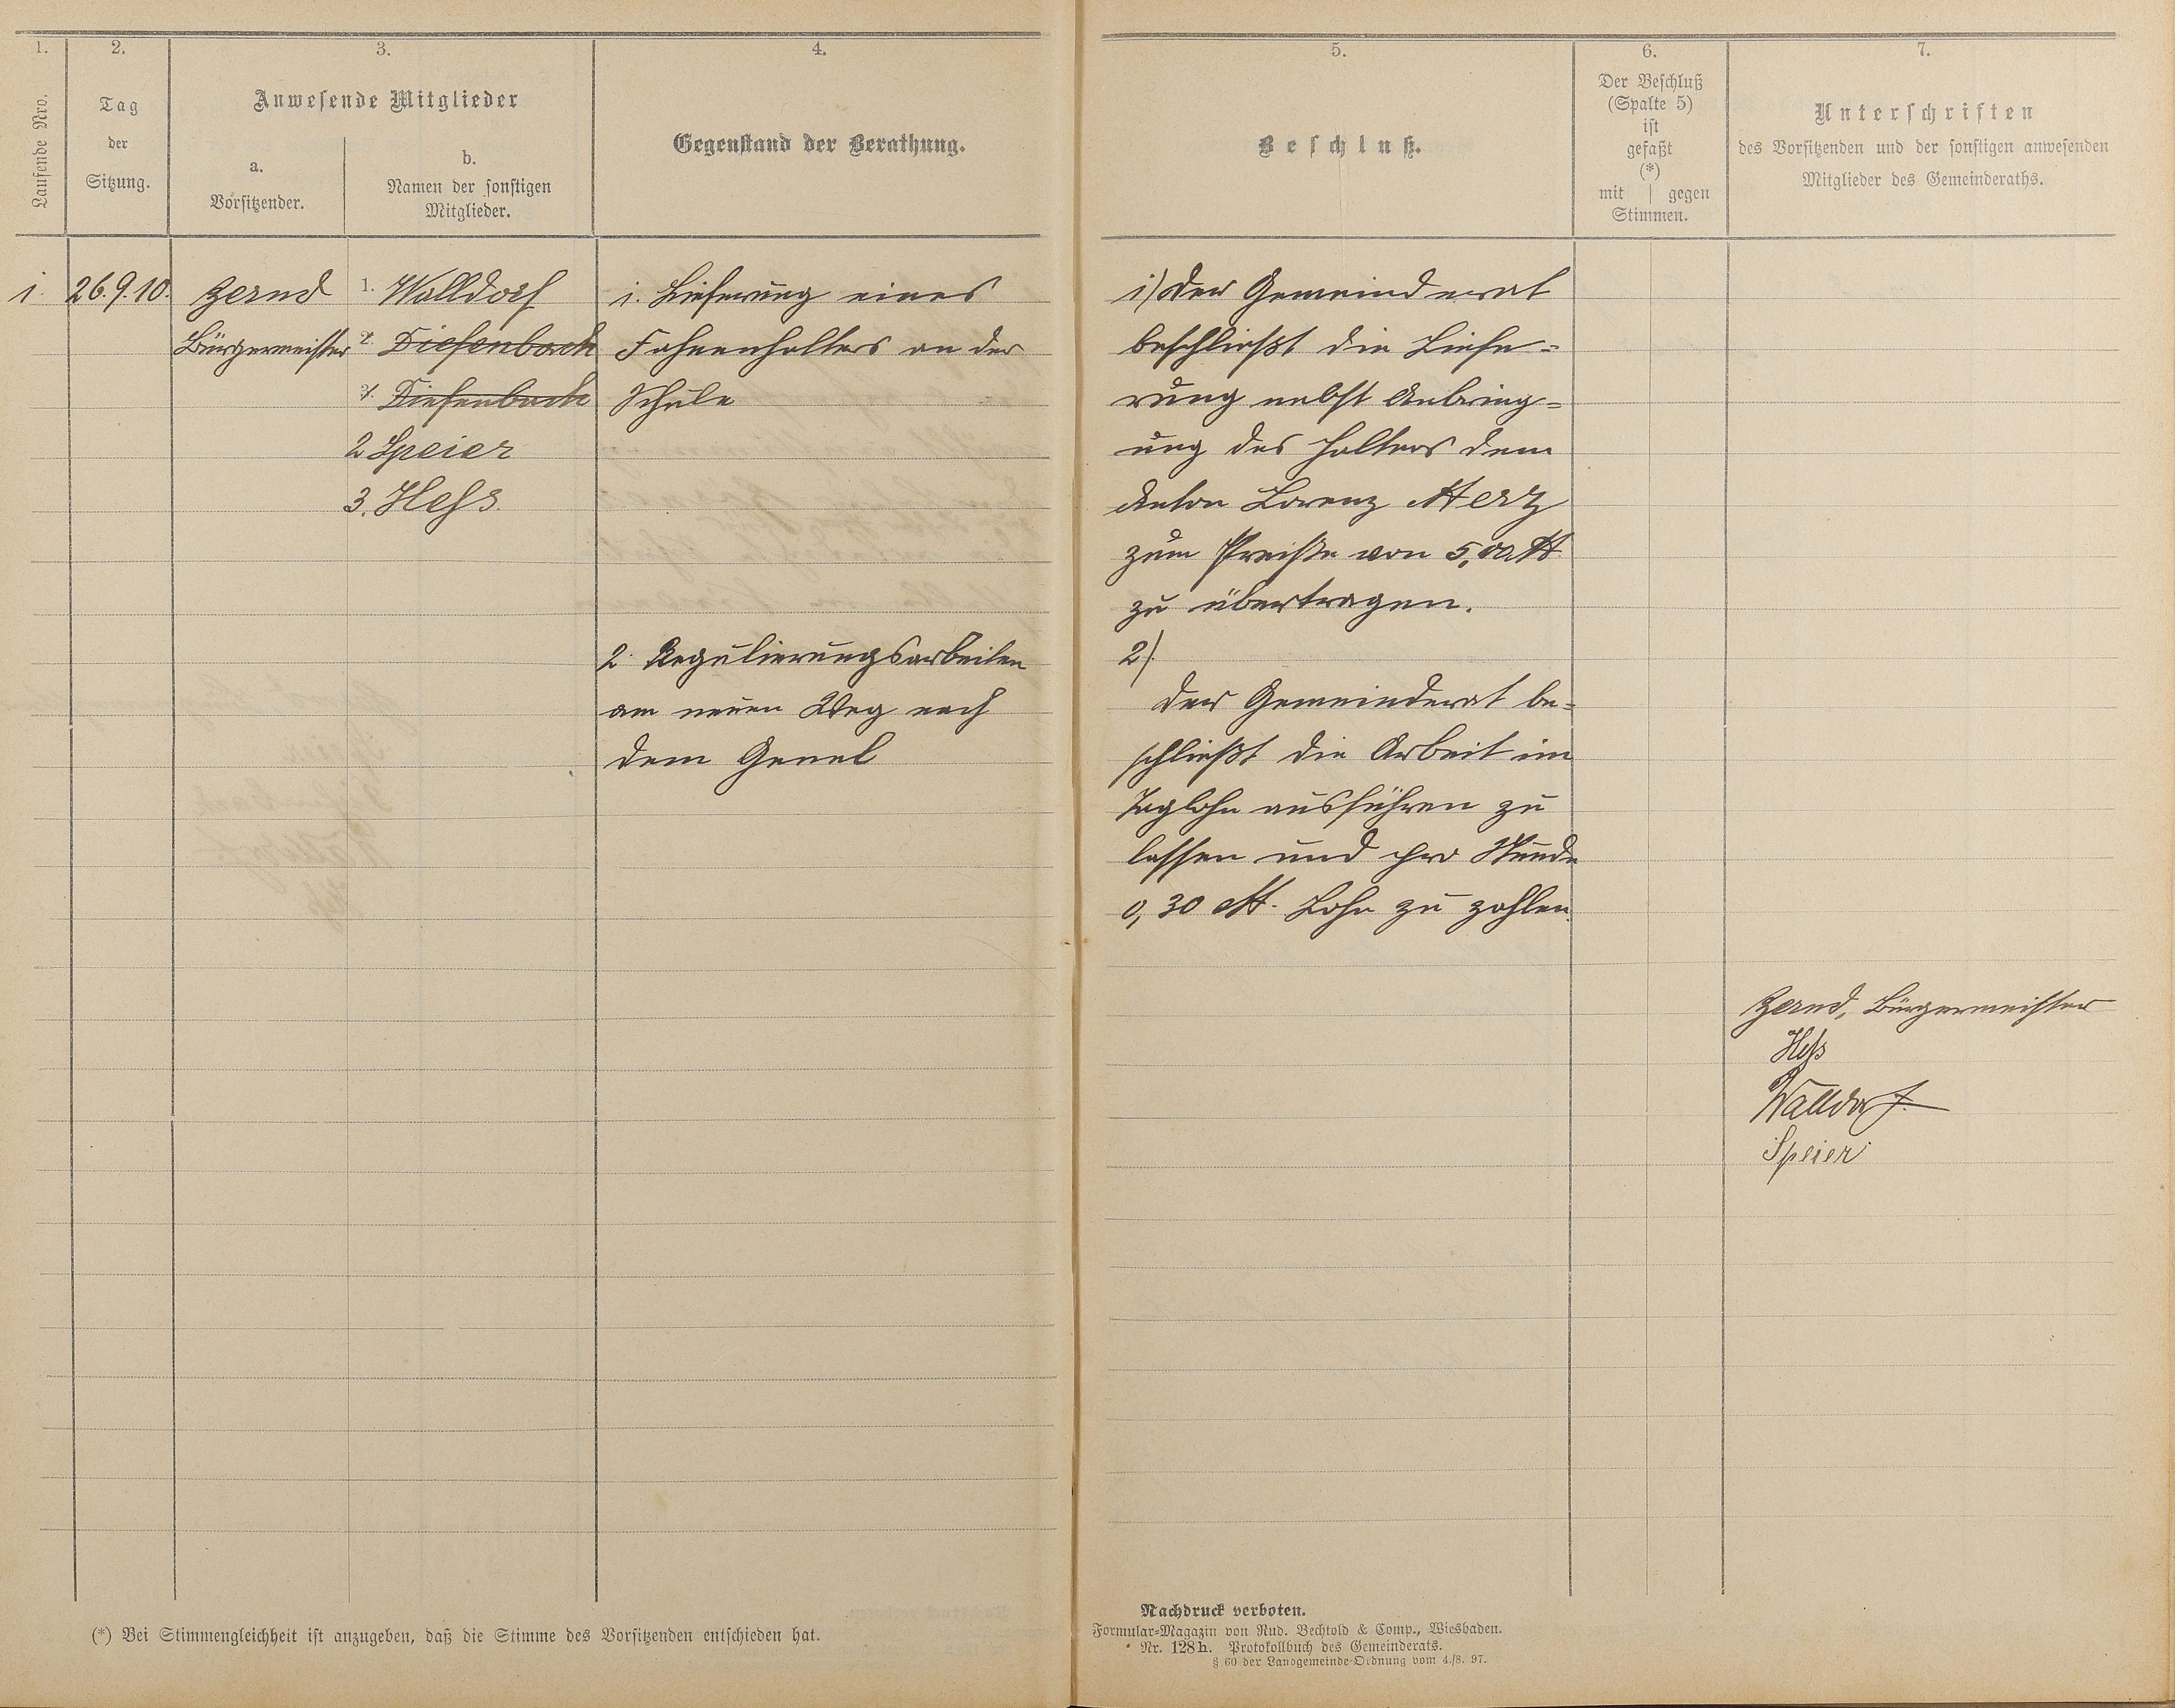 1.
Laufende Nro.
2.
Tag
der
Sitzung.
3.
Anwesende Mitglieder
a.
Vorsitzender.
b.
Namen der sonstigen
Mitglieder.
4.
Gegenstand der Berathung.
5.
Beschluß.
6.
Der Beschluß
(Spalte 5)
ist
gefaßt
(*)
mit | gegen
Stimmen.
7.
Unterschriften
des Vorsitzenden und der sonstigen anwesenden
Mitglieder des Gemeinderaths.
1.
26.9.10.
Zernd
Bürgermeister
1. Walldorf
2. Diefenbach
3. Diefenbach
2 Speier
3. Heß.
1. Lieferung eines
Fahnenhalters an der
Schule
2. Regulierungsarbeiten
am neuen Weg nach
dem
1) Der Gemeinderat
beschließt die Liefe-
rung nebst Anbring-
ung des Halters dem
Anton Lorenz Herz
zum Preiße von 5,00 M
zu übertragen.
2).
Der Gemeinderat be-
schließt die Arbeit im
Taglohn ausführen zu
lassen und pro Stunde
0,30 M. Lohn zu zahlen.
Zernd, Bürgermeister
Heß
Walldorf.
Speier
(*) Bei Stimmengleichheit ist anzugeben, daß die Stimme des Vorsitzenden entschieden hat.
Nachdruck verboten.
Formular-Magazin von Rud. Bechtold & Comp., Wiesbaden.
Nr. 128h. Protokollbuch des Gemeinderats.
§ 60 der Landgemeinde-Ordnung vom 4./8. 97.